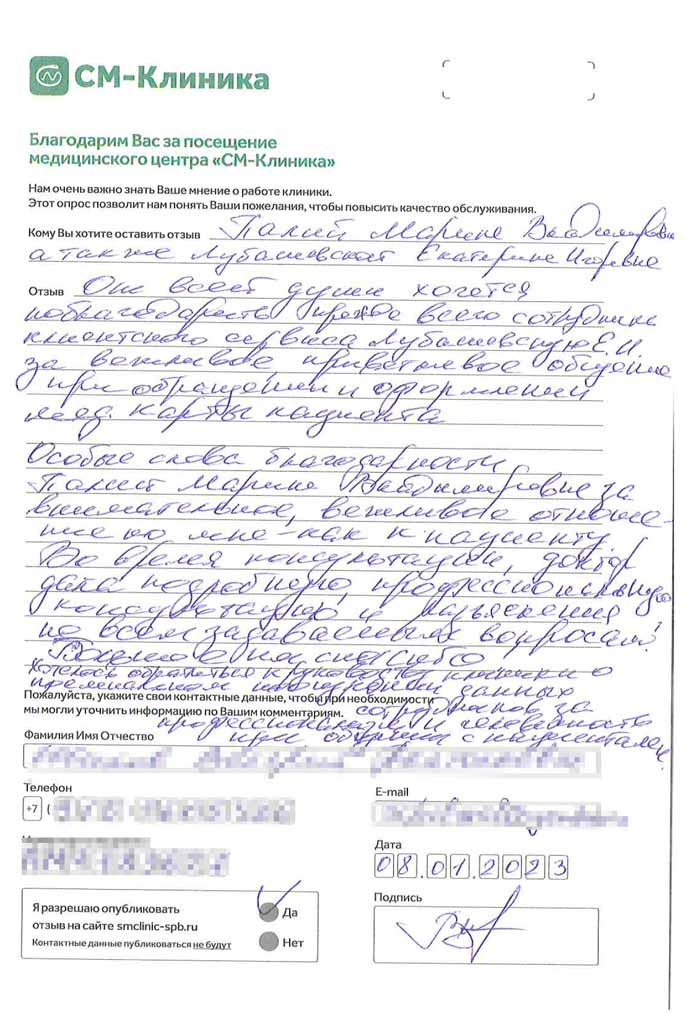 СМ-Клиника
Благодарим Вас за посещение
медицинского центра «СМ-Клиника»
Нам очень важно знать Ваше мнение о работе клиники.
Этот опрос позволит нам понять Ваши пожелания, чтобы повысить качество обслуживания.
Кому Вы хотите оставить отзыв Палий Марине Владимировне
а также Лубашевской Екатерине Игоревне
Отзыв От всей души хочется
поблагодарить прежде всего сотрудника
клиентского сервиса Лубашевскую Е.И.
за вежливое приветливое общение
при обращении и оформлении
мед. карты пациента
Особые слова благодарности
Палий Марине Владимировне за
внимательное, вежливое отноше-
ние ко мне - как к пациенту
Во время консультации, доктор
дала подробную, профессиональную
консультацию и разъяснения
по всем задаваемым вопросам
спасибо
Хотелось обратиться к руководству клиники о
данных
Пожалуйста, укажите свои контактные данные, чтобы при необходимости
мы могли уточнить информацию по Вашим комментариям. сотрудников за
профессионализм и человечность
при общении с пациентами.
Фамилия Имя Отчество
Телефон
E-mail
+7 (
Дата
08.01.2023
Я разрешаю опубликовать
отзыв на сайте smclinic-spb.ru
Контактные данные публиковаться не будут
Да
Нет
Подпись